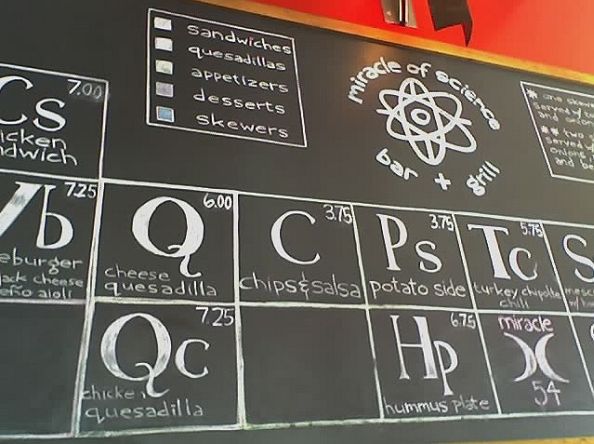 sandwiches
quesadillas
appetizers
desserts
skewers
miracle of science
bar + grill
* one skewer
served w/
and
** two
served
onions,
and
7.00
Cs
icken
dwich
7.25
b
eburger
jack cheese
eño aioli
6.00
Q
cheese
quesadilla
3.75
C
chips & salsa
3.75
Ps
potato side
5.75
Tc
turkey chipotle
chili
S
7.25
Qc
chicken
quesadilla
6.75
Hp
hummus plate
miracle
54